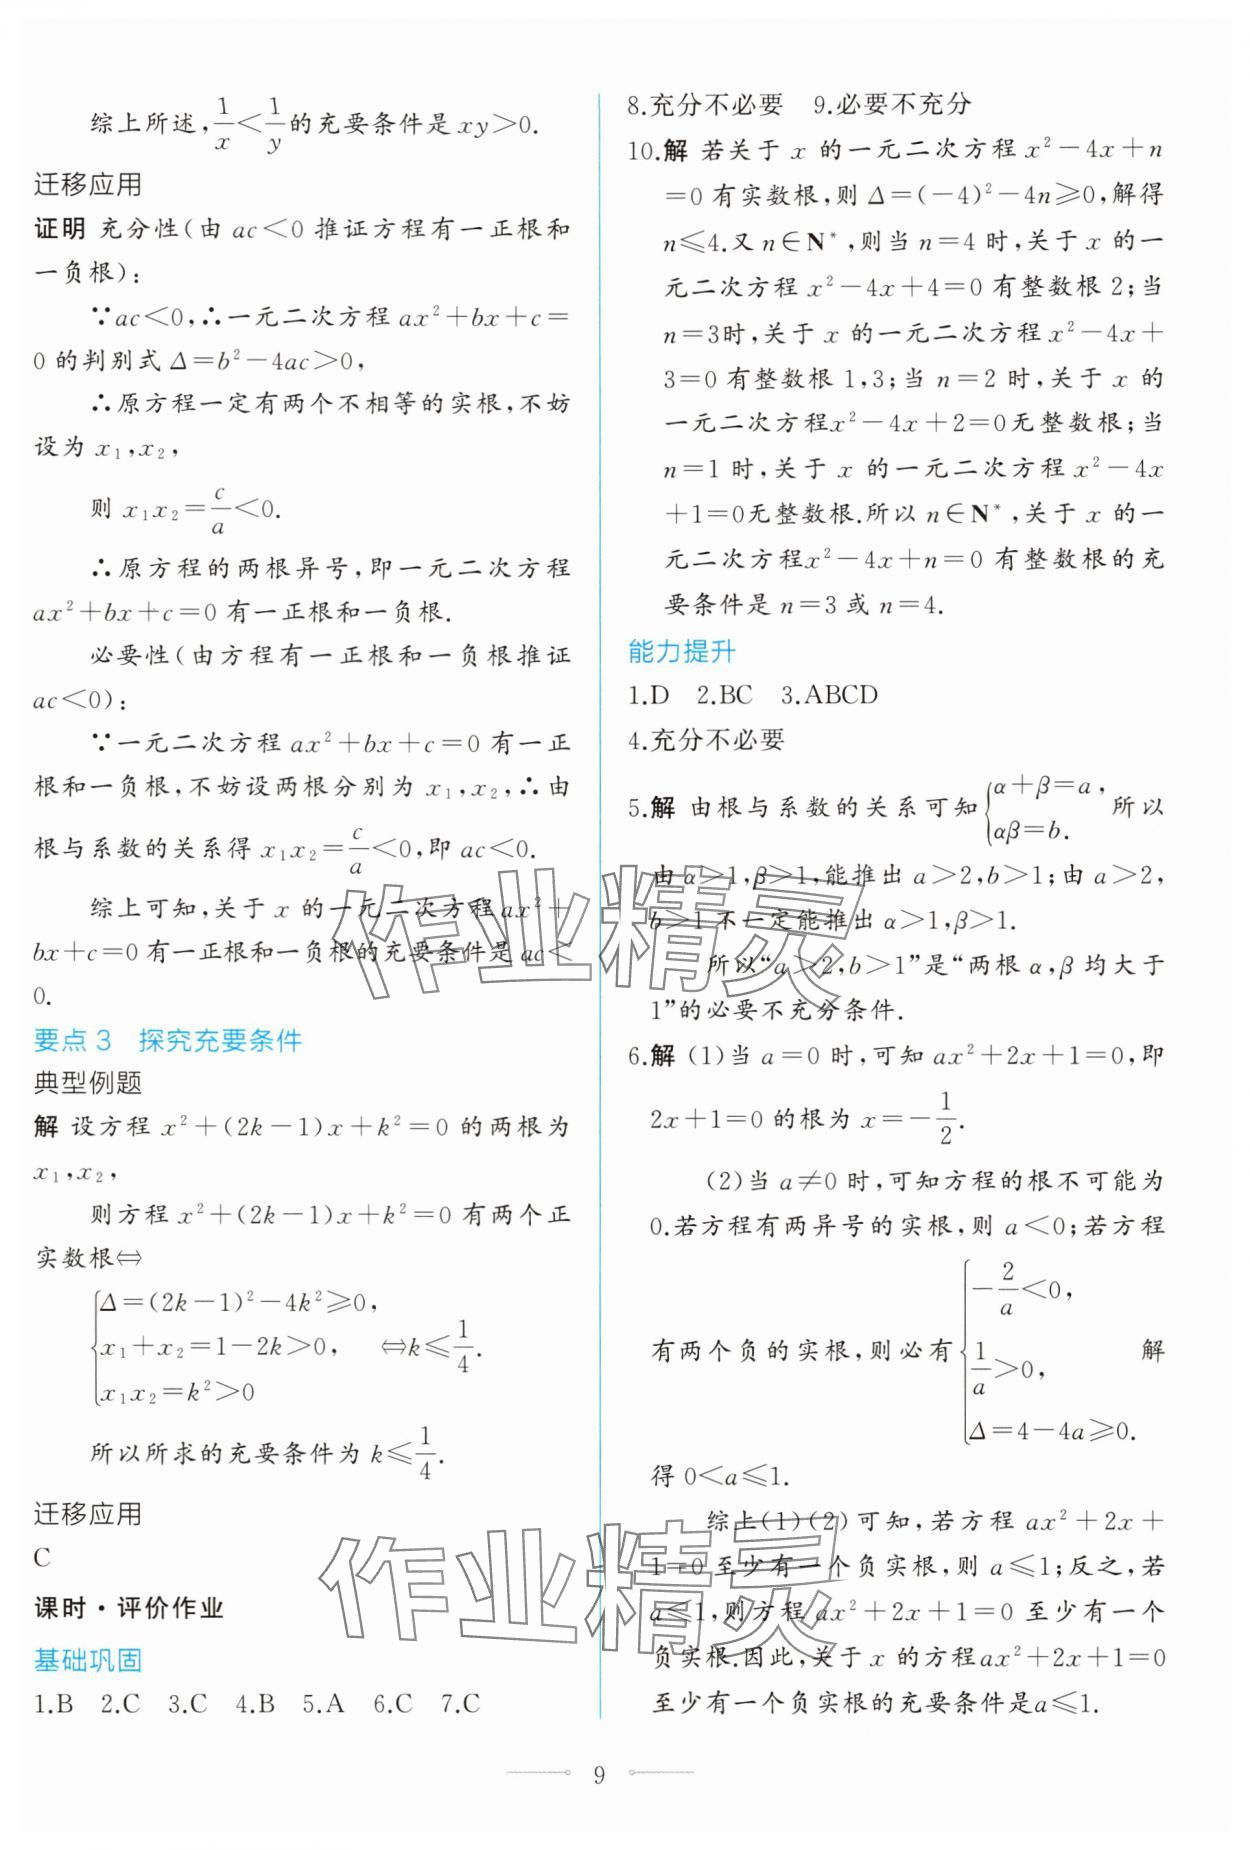 综上所述,1/x<1/y的充要条件是xy>0.
迁移应用
证明 充分性(由ac<0推证方程有一正根和
一负根):
∵ac<0,∴一元二次方程ax²+bx+c=
0的判别式Δ=b²-4ac>0,
∴原方程一定有两个不相等的实根,不妨
设为x₁,x₂,
则x₁x₂=c/a<0.
∴原方程的两根异号,即一元二次方程
ax²+bx+c=0有一正根和一负根.
必要性(由方程有一正根和一负根推证
ac<0):
∵一元二次方程ax²+bx+c=0有一正
根和一负根,不妨设两根分别为x₁,x₂,∴由
根与系数的关系得x₁x₂=c/a<0,即ac<0.
综上可知,关于x的一元二次方程ax²+
bx+c=0有一正根和一负根的充要条件是ac<
0.
要点3 探究充要条件
典型例题
解 设方程x²+(2k-1)x+k²=0的两根为
x₁,x₂,
则方程x²+(2k-1)x+k²=0有两个正
实数根⇔
{Δ=(2k-1)²-4k²≥0,
x₁+x₂=1-2k>0, ⇔k≤1/4.
x₁x₂=k²>0
所以所求的充要条件为k≤1/4.
迁移应用
C
课时·评价作业
基础巩固
1.B 2.C 3.C 4.B 5.A 6.C 7.C
8.充分不必要 9.必要不充分
10.解 若关于x的一元二次方程x²-4x+n
=0有实数根,则Δ=(-4)²-4n≥0,解得
n≤4.又n∈N*,则当n=4时,关于x的一
元二次方程x²-4x+4=0有整数根2;当
n=3时,关于x的一元二次方程x²-4x+
3=0有整数根1,3;当n=2时,关于x的
一元二次方程x²-4x+2=0无整数根;当
n=1时,关于x的一元二次方程x²-4x
+1=0无整数根.所以n∈N*,关于x的一
元二次方程x²-4x+n=0有整数根的充
要条件是n=3或n=4.
能力提升
1.D 2.BC 3.ABCD
4.充分不必要
5.解 由根与系数的关系可知{α+β=a, αβ=b. 所以
由α>1,β>1,能推出a>2,b>1;由a>2,
b>1不一定能推出α>1,β>1.
所以“a>2,b>1”是“两根α,β均大于
1”的必要不充分条件.
6.解 (1)当a=0时,可知ax²+2x+1=0,即
2x+1=0的根为x=-1/2.
(2)当a≠0时,可知方程的根不可能为
0.若方程有两异号的实根,则a<0;若方程
有两个负的实根,则必有{-2/a<0, 1/a>0, Δ=4-4a≥0. 解
得0<a≤1.
综上(1)(2)可知,若方程ax²+2x+
1=0至少有一个负实根,则a≤1;反之,若
a≤1,则方程ax²+2x+1=0至少有一个
负实根.因此,关于x的方程ax²+2x+1=0
至少有一个负实根的充要条件是a≤1.
9
作业精灵
作业精灵